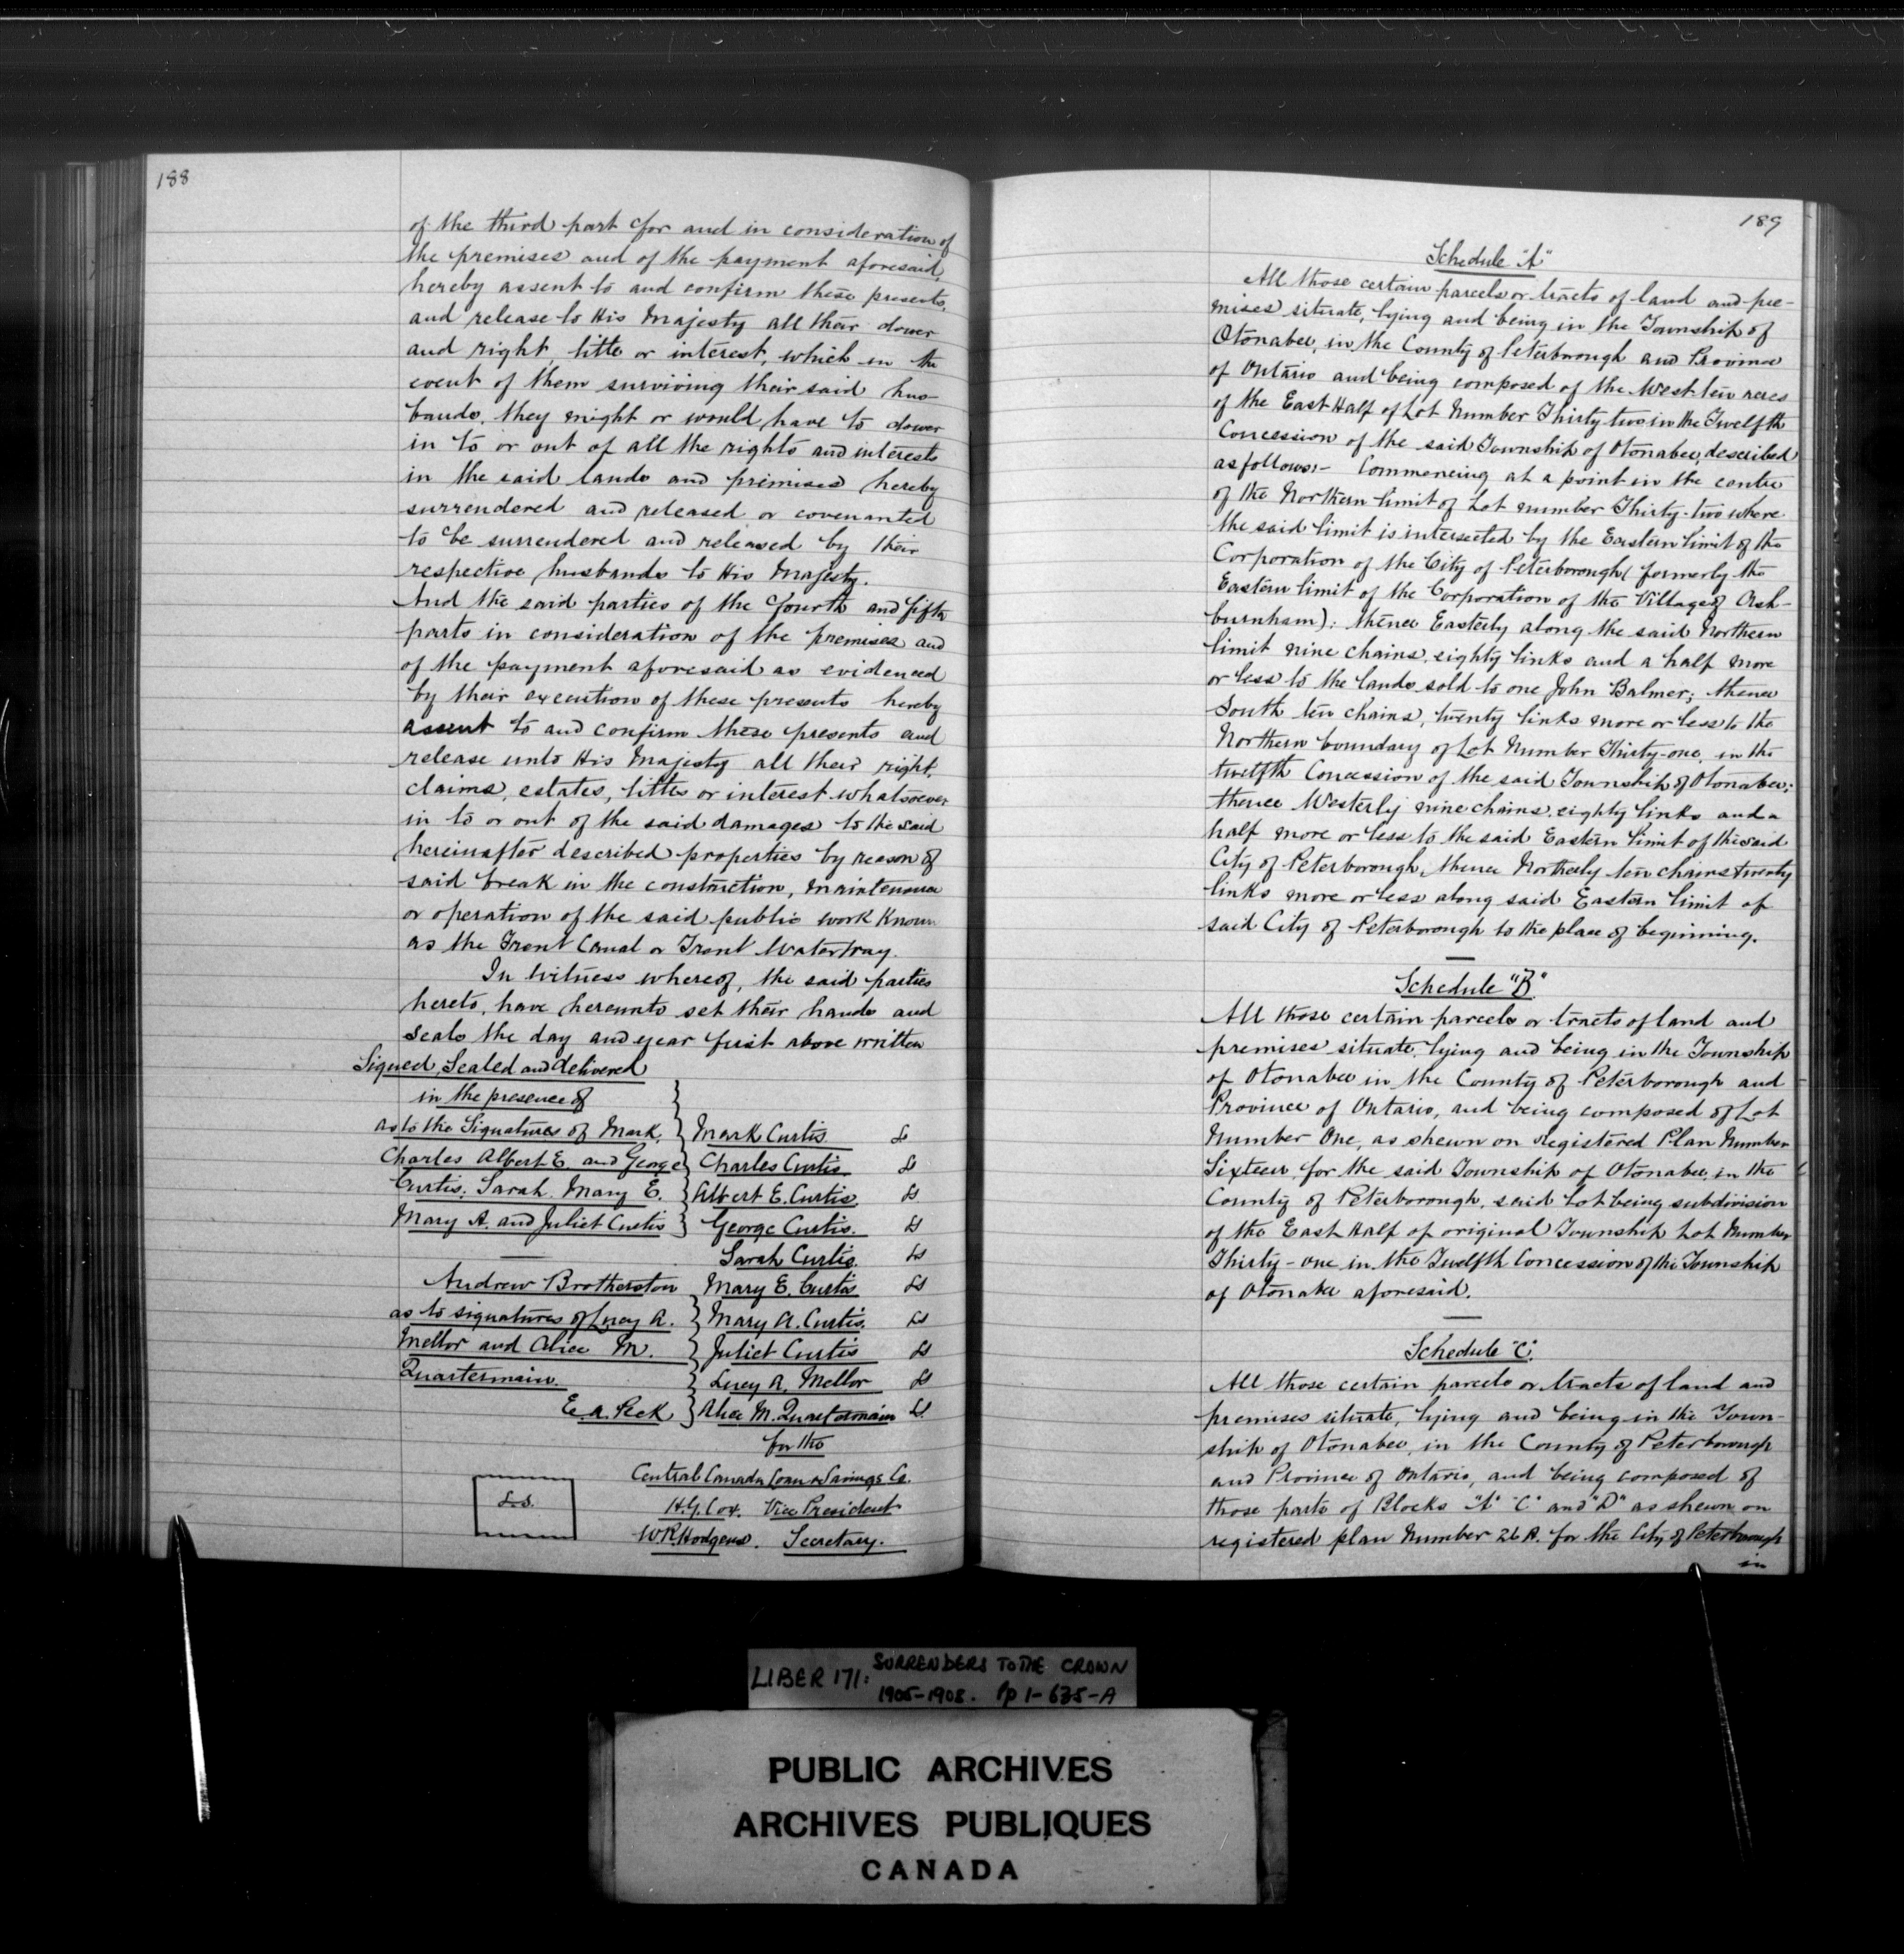 188
of the third part for and in consideration of
the premises and of the payment aforesaid,
hereby assent to and confirm these presents,
and release to His Majesty all their dower
and right, title or interest, which in the
event of them surviving their said hus-
bands, they might or would have to dower
in to or out of all the rights and interests
in the said lands and premises hereby
surrendered and released or covenanted
to be surrendered and released by their
respective husbands to His Majesty.
And the said parties of the fourth and fifth
parts in consideration of the premises and
of the payment aforesaid as evidenced
by their execution of these presents hereby
assent to and confirm these presents and
release unto His Majesty all their right,
claims, estates, titles or interest whatsoever
in to or out of the said damages to the said
hereinafter described properties by reason of
said break in the construction, maintenance
or operation of the said public work known
as the Trent Canal or Trent Waterway.
In Witness whereof, the said parties
hereto, have hereunto set their hands and
seals the day and year first above written
Signed, Sealed and delivered
in the presence of
as to the Signatures of Mark, Mark Curtis Ls
Charles Albert E. and George Charles Curtis Ls
Curtis, Sarah, Mary E. Albert E. Curtis Ls
Mary A. and Juliet Curtis George Curtis. Ls
Sarah Curtis. Ls
Andrew Brotherston Mary E. Curtis Ls
as to signatures of Lucy A. Mary A. Curtis. Ls
Mellor and Alice M. Juliet Curtis Ls
Quartermain. Lucy A. Mellor Ls
E. A. Peck Alice M. Quartermain L.S.
for the
Central Canada Loan & Savings Co.
L.S. H. G. Cox. Vice President
W R Hodgens. Secretary.
189
Schedule "A"
All those certain parcels or tracts of land and pre-
mises situate, lying and being in the Township of
Otonabee, in the County of Peterborough and Province
of Ontario and being composed of the West ten acres
of the East Half of Lot Number Thirty two in the Twelfth
Concession of the said Township of Otonabee, described
as follows:- Commencing at a point in the centre
of the Northern limit of Lot number Thirty-two where
the said limit is intersected by the Eastern limit of the
Corporation of the City of Peterborough (formerly the
Eastern limit of the Corporation of the Village of Ash-
burnham): thence Easterly along the said Northern
limit nine chains, eighty links and a half more
or less to the lands sold to one John Balmer; thence
South ten chains, twenty links more or less to the
Northern boundary of Lot Number Thirty-one, in the
twelfth Concession of the said Township of Otonabee;
thence Westerly nine chains, eighty links and a
half more or less to the said Eastern limit of the said
City of Peterborough, thence Northerly ten chains twenty
links more or less along said Eastern limit of
said City of Peterborough to the place of beginning.
Schedule "B"
All those certain parcels or tracts of land and
premises situate, lying and being in the Township
of Otonabee in the County of Peterborough and
Province of Ontario, and being composed of Lot
Number One, as shewn on registered Plan Number
Sixteen, for the said Township of Otonabee, in the
County of Peterborough, said Lot being subdivision
of the East Half of original Township Lot Number
Thirty-one in the Twelfth Concession of the Township
of Otonabee aforesaid.
Schedule "C".
All those certain parcels or tracts of land and
premises situate, lying and being in the Town-
ship of Otonabee, in the County of Peterborough
and Province of Ontario, and being composed of
those parts of Blocks "A" "C" and "D" as shewn on
registered plan Number 26 A. for the City of Peterborough
in
LIBER 171: SURRENDERS TO THE CROWN
1905-1908. Pp 1-635-A
PUBLIC ARCHIVES
ARCHIVES PUBLIQUES
CANADA